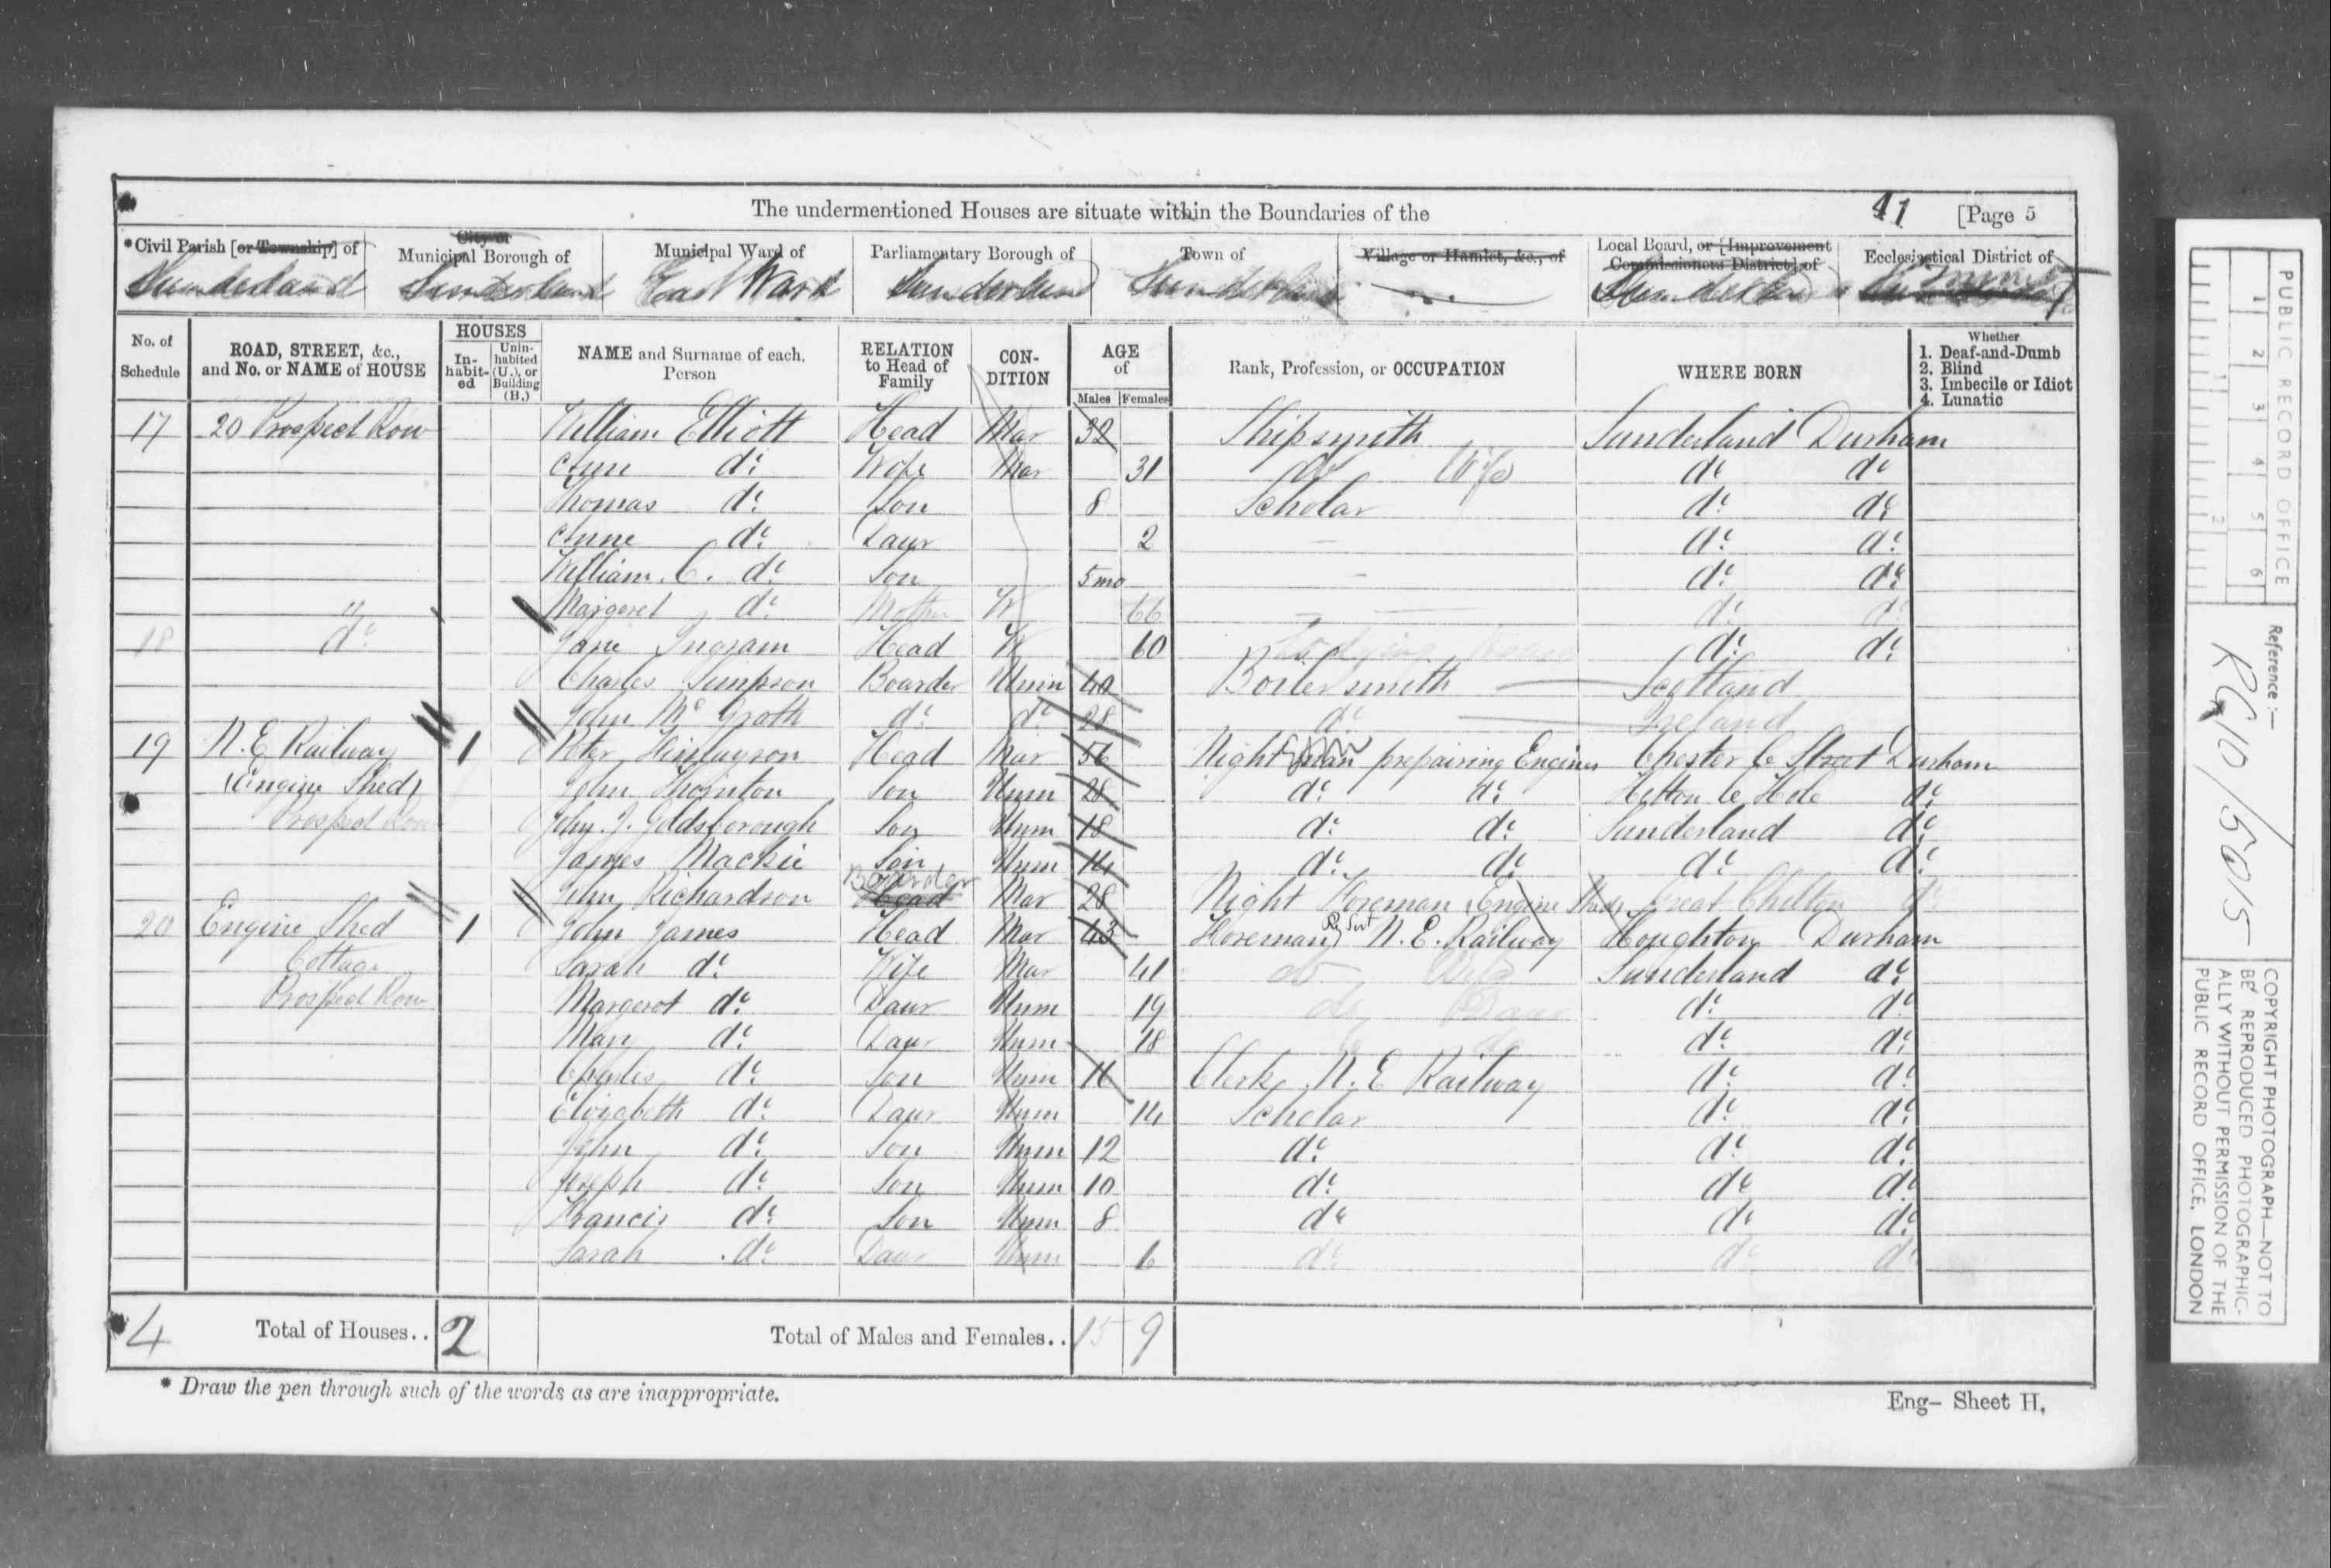 The undermentioned Houses are situate within the Boundaries of the
41 [Page 5
*Civil Parish [or Township] of
City or Municipal Borough of
Municipal Ward of
Parliamentary Borough of
Town of
Village or Hamlet, &c., of
Local Board, or [Improvement Commissioners District] of
Ecclesiastical District of
Sunderland Sunderland East Ward Sunderland Sunderland Sunderland
No. of Schedule
ROAD, STREET, &c., and No. or NAME of HOUSE
HOUSES
In-habit-ed
Unin-habited (U.), or Building (B.)
NAME and Surname of each Person
RELATION to Head of Family
CON-DITION
AGE of
Males Females
Rank, Profession, or OCCUPATION
WHERE BORN
Whether
1. Deaf-and-Dumb
2. Blind
3. Imbecile or Idiot
4. Lunatic
17 20 Prospect Row William Elliott Head Mar 32 Shipsmith Sunderland Durham
Anne do Wife Mar 31 do Wife do do
Thomas do Son 8 Scholar do do
Anne do Daur 2 do do
William C. do Son 5 mo do do
" Margaret do Mother W 66 do do
18 do Jane Ingram Head W 60 Lodging House do do
Charles Simpson Boarder Unm 40 Boiler smith Scotland
John Mc Groth do do 28 do Ireland
19 N. E Railway 1 Peter Finlayson Head Mar 56 Night man prepairing Engines Chester le Street Durham
(Engine Shed) John Thornton Son Unm 28 do do Hetton le Hole do
Prospect Row John. J. Goldsborough Son Unm 18 do do Sunderland do
James Mackie Son Unm 14 do do do do
John Richardson Boarder Head Mar 28 Night Foreman Engine Shed Great Chilton do
20 Engine Shed 1 John James Head Mar 43 Foreman N. E. Railway Houghton Durham
Cottage Sarah do Wife Mar 41 do Wife Sunderland do
Prospect Row Margerot do Daur Unm 19 do Daur do do
Mary do Daur Unm 18 do do
Charles do Son Unm 16 Clerk N. E Railway do do
Elizabeth do Daur Unm 14 Scholar do do
John do Son Unm 12 do do do
Joseph do Son Unm 10 do do do
Francis do Son Unm 8 do do do
Sarah do Daur Unm 6 do do do
4 Total of Houses.. 2 Total of Males and Females.. 15 9
* Draw the pen through such of the words as are inappropriate.
Eng- Sheet H.
PUBLIC RECORD OFFICE
1 2 3 4 5 6
1 2
Reference:-
RG 10/5015
COPYRIGHT PHOTOGRAPH—NOT TO
BE REPRODUCED PHOTOGRAPHIC-
ALLY WITHOUT PERMISSION OF THE
PUBLIC RECORD OFFICE, LONDON